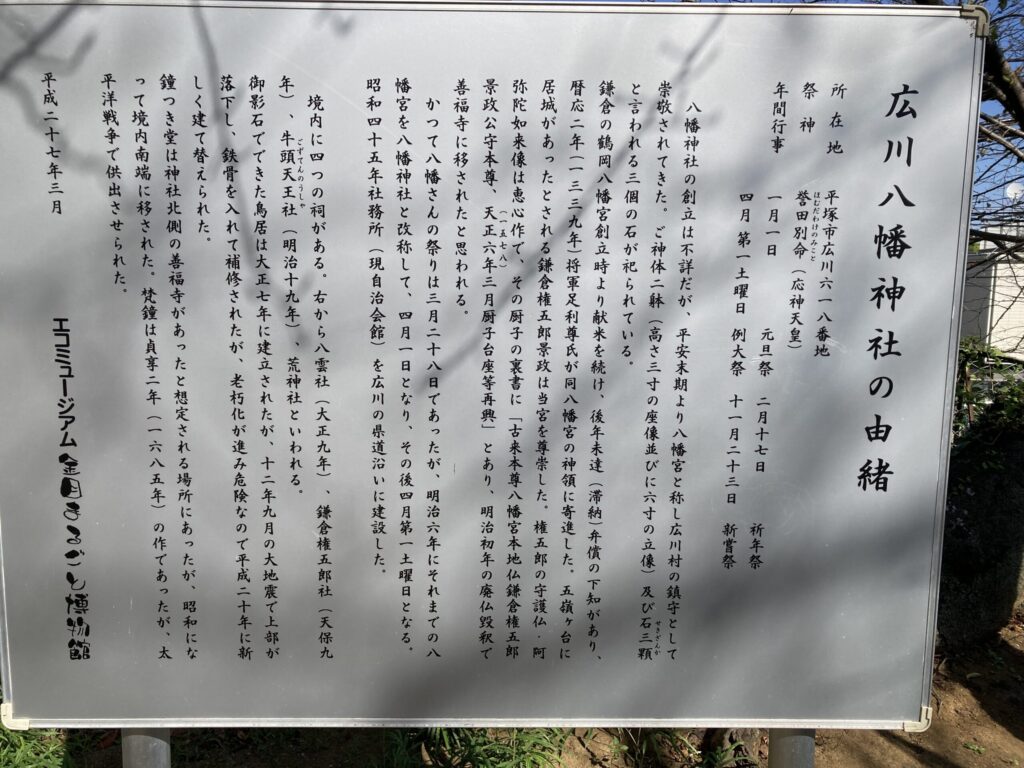 広川八幡神社の由緒
所在地　平塚市広川六一八番地
祭神　誉田別命（応神天皇）
ほむだわけのみこと
年間行事　一月一日　元旦祭　二月十七日　祈年祭
四月第一土曜日　例大祭　十一月二十三日　新嘗祭
八幡神社の創立は不詳だが、平安末期より八幡宮と称し広川村の鎮守として
崇敬されてきた。ご神体二躰（高さ三寸の座像並びに六寸の立像）及び石三顆
せきさんか
と言われる三個の石が祀られている。
鎌倉の鶴岡八幡宮創立時より献米を続け、後年未達（滞納）弁償の下知があり、
暦応二年（一三三九年）将軍足利尊氏が同八幡宮の神領に寄進した。五嶺ヶ台に
居城があったとされる鎌倉権五郎景政は当宮を尊崇した。権五郎の守護仏・阿
弥陀如来像は恵心作で、その厨子の裏書に「古来本尊八幡宮本地仏鎌倉権五郎
景政公守本尊、天正六年三月厨子台座等再興」とあり、明治初年の廃仏毀釈で
（一五七八）
善福寺に移されたと思われる。
かつて八幡さんの祭りは三月二十八日であったが、明治六年にそれまでの八
幡宮を八幡神社と改称して、四月一日となり、その後四月第一土曜日となる。
昭和四十五年社務所（現自治会館）を広川の県道沿いに建設した。
境内に四つの祠がある。右から八雲社（大正九年）、鎌倉権五郎社（天保九
年）、牛頭天王社（明治十九年）、荒神社といわれる。
ごずてんのうしゃ
御影石でできた鳥居は大正七年に建立されたが、十二年九月の大地震で上部が
落下し、鉄骨を入れて補修されたが、老朽化が進み危険なので平成二十年に新
しく建て替えられた。
鐘つき堂は神社北側の善福寺があったと想定される場所にあったが、昭和にな
って境内南端に移された。梵鐘は貞享二年（一六八五年）の作であったが、太
平洋戦争で供出させられた。
平成二十七年三月　エコミュージアム　金目まるごと博物館